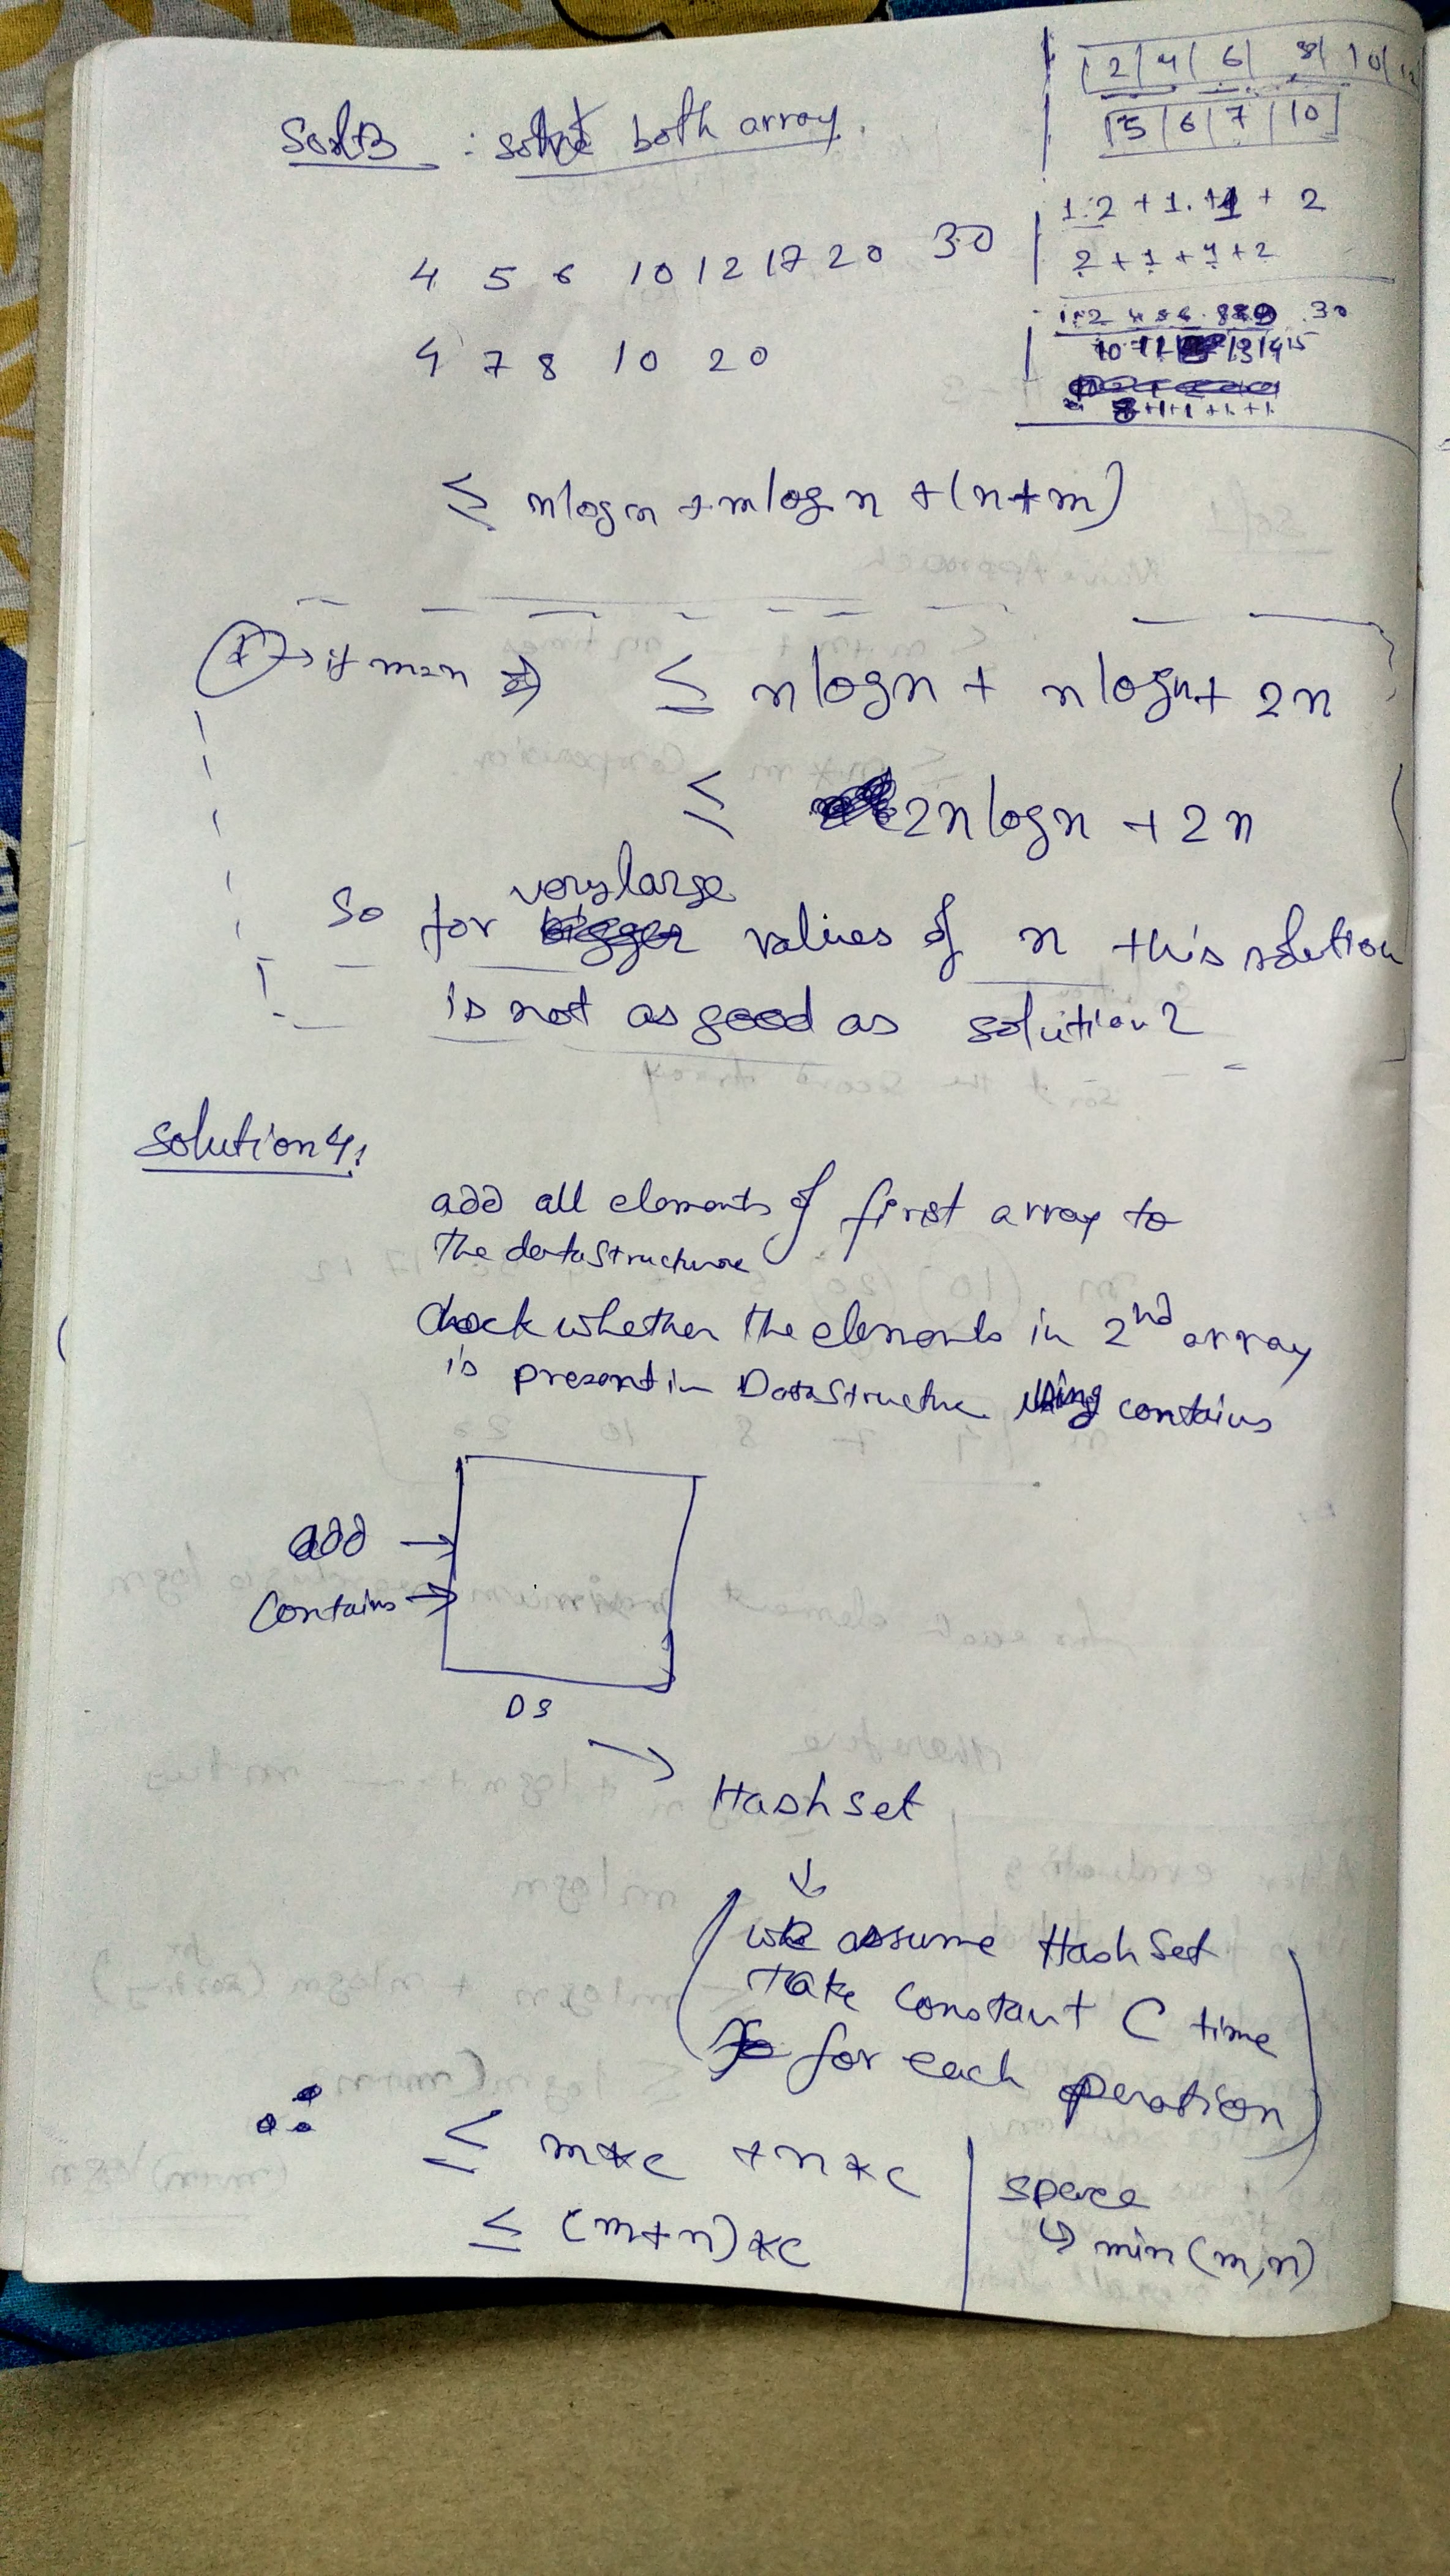 Soln3 : sort both array.
4 5 6 10 12 17 20 30
4 7 8 10 20
≤ nlogn + mlogn + (n+m)
2 | 4 | 6 | 8 | 10 | 12
5 | 6 | 7 | 10
1.2 + 1. + 1 + 2
2 + 1 + 1 + 2
+1+1+1+1
* → if m=n ⇒ ≤ nlogn + nlogn + 2n
≤ 2nlogn + 2n
So for very large values of n this solution
is not as good as solution 2
Solution 4:
add all elements of first array to
the datastructure
check whether the elements in 2nd array
is present in DataStructure using contains
add →
Contains →
DS
→ Hashset
↓
(we assume HashSet
Take Constant C time
for each operation)
∴ ≤ m*c + n*c
≤ (m+n)*c
space
↳ min(m,n)